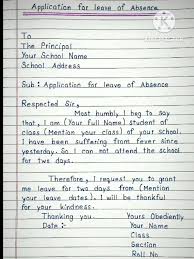 Application for leave of Absence
To
The Principal
Your School Name
School Address
Sub : Application for leave of Absence
Respected Sir,
Most humbly I beg to say
that, I am (Your full Name) student of
class (Mention your class) of your school.
I have been suffering from fever since
yesterday. So I can not attend the school
for two days.
Therefore, I request you to grant
me leave for two days from (Mention
your leave dates). I will be thankful
for your kindness.
Thanking you. Yours Obediently
Date :- Your Name
Class
Section
Roll No.